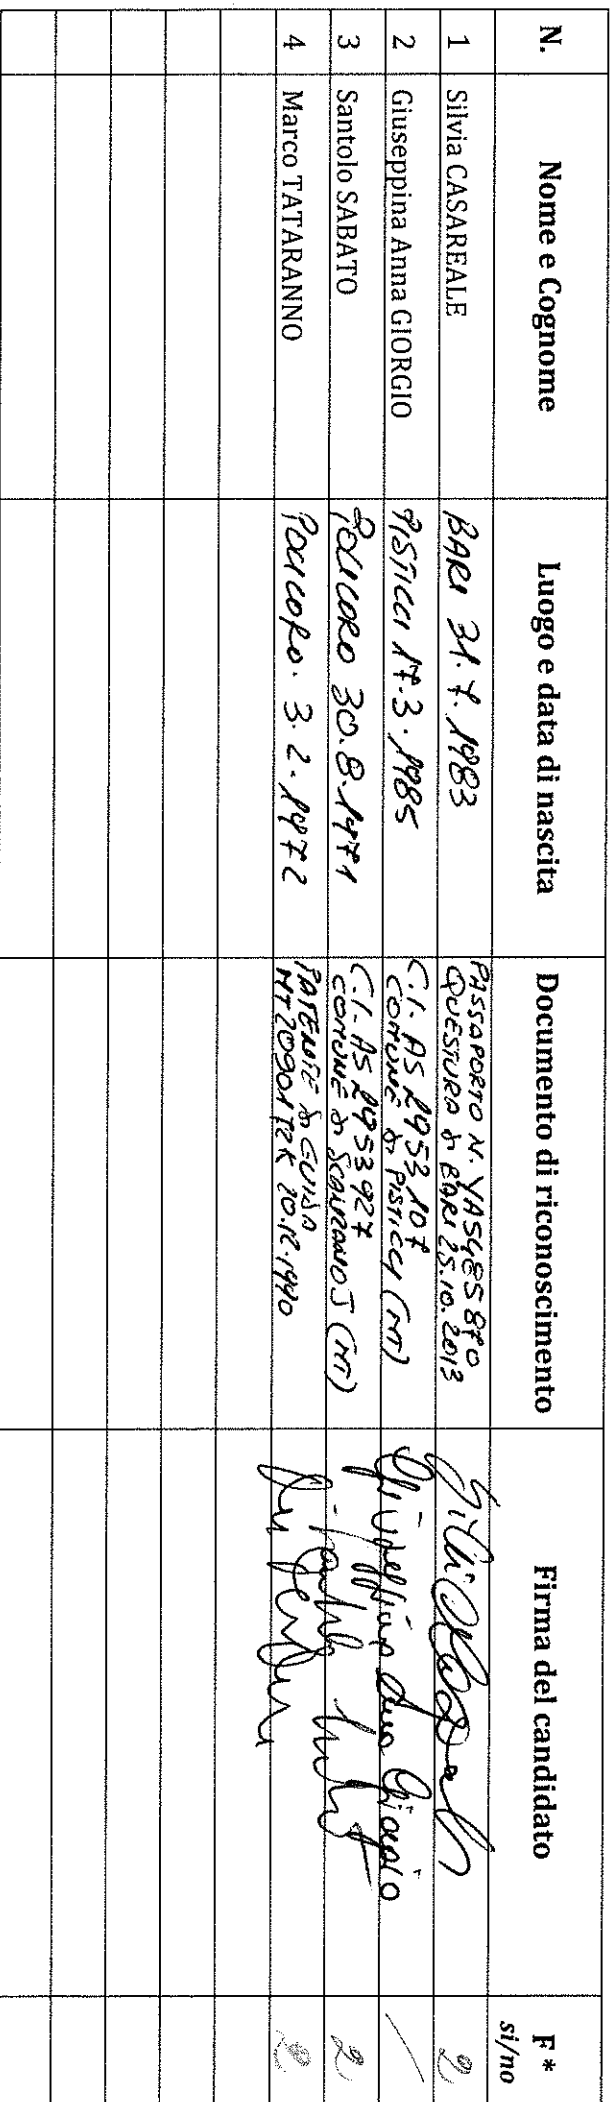 N. Nome e Cognome Luogo e data di nascita Documento di riconoscimento Firma del candidato F*
si/no
1 Silvia CASAREALE BARI 31.7.1983 PASSAPORTO N. YA5485870
QUESTURA di BARI 25.10.2013
2 Giuseppina Anna GIORGIO PISTICCI 17.3.1985 C.I. AS 2953107
COMUNE di PISTICCI (MT) Giuseppina Anna Giorgio
3 Santolo SABATO POLICORO 30.8.1971 C.I. AS 2953927
COMUNE di SCANZANO J (MT)
4 Marco TATARANNO POLICORO. 3.2.1972 PATENTE di GUIDA
20.12.1990